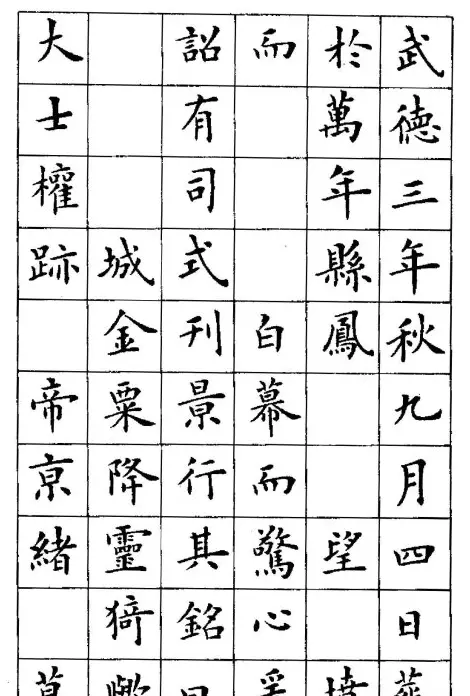 武德三年秋九月四日
於萬年縣鳳 望
而 白幕而驚心
詔有司式刊景行其銘曰
城金粟降靈猗歟
大士權跡 帝亰緒